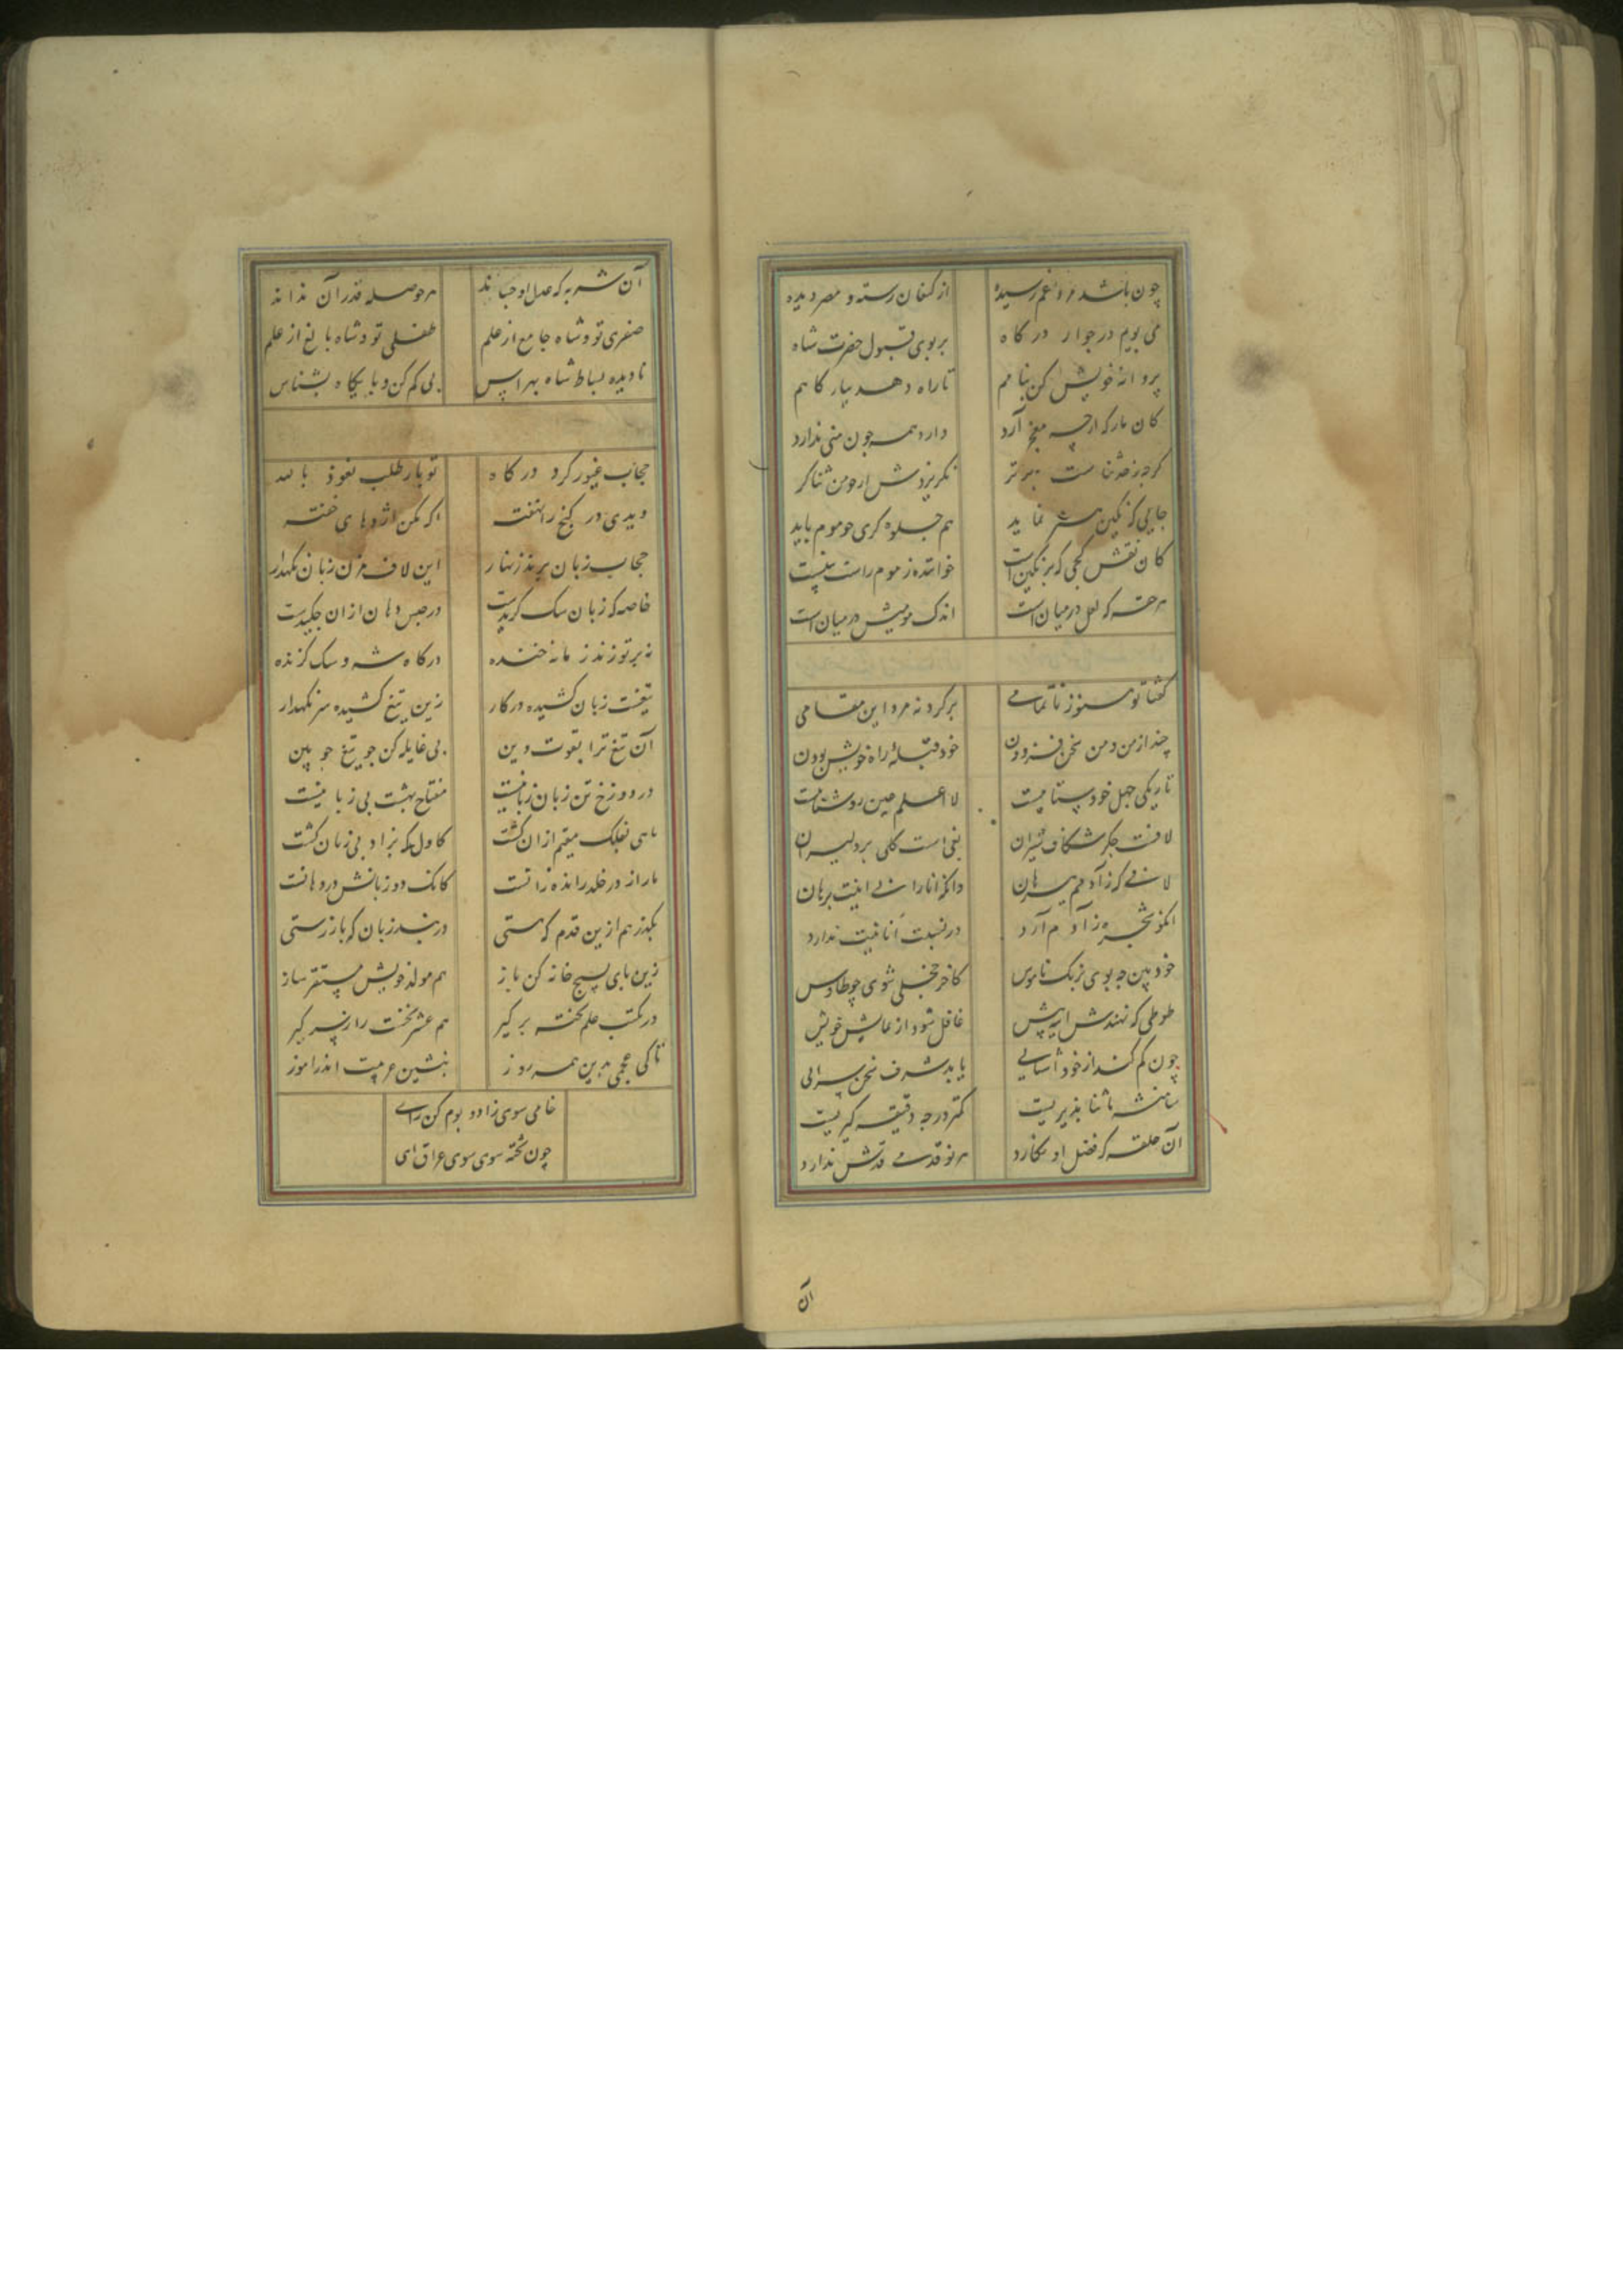 چون باشد مرد غم رسیده از کنعان رسته و مصر دیده
می بویم در جوار درگاه بر بوی قبول حضرت شاه
پروانه خویش کن بنامم تا راه دهد ببار کاهم
کان بارکه ارچه آرد دارد همه چون منی ندارد
نکریزدش از و من ثناکر
جایی که نکین هنر نماید هم جلوه کری چو موم باید
کان نقش کجی که بر نکین است خواننده ز موم راست بین است
هر حقه که لعل در میان است اندک مومیش در میان است
گفتا تو هنوز ناتمامی برکرد نه مرد این مقامی
چند از من و من سخن فزودن خود قبله راه خویش بودن
تاریکی جهل خود ستاییت لا اعلم عین روشناییت
لافت جگر شکاف شیران بغی است کلی بر دلیران
در نسبت انا خیت ندارد
خود بین چه بوی برنک ناموس کاخر خجلی شوی چو طاوس
طوطی که نهندش آینه پیش غافل شود از نمایش خویش
چون کم کند از خود آشنایی یابد شرف سخن سرایی
شاهنشه ما ثنا پذیریست کمتر درجه دقیقه گیریست
آن حلقه که فضل او نگارد هر نو قدمی قدش ندارد
آن
آن شربه که عدل او چشاند هر حوصله قدر آن نداند
صفری تو و شاه جامع از علم طفلی تو و شاه بالغ از علم
نادیده بساط شاه بهراس پی کم کن و پایگاه بشناس
حجاب غیور گرد درگاه تو بار طلب نعوذ بالله
دیدی در گنج را نهفته اژدهای خفته
حجاب زبان برند زنهار این لاف مزن زبان نگهدار
خاصه که زبان سک گریست در حبس دهان از ان جگریست
نه بر تو زند زمانه خنده درگاه شه و سک گزنده
تیغست زبان کشیده در کار زین تیغ کشیده سر نگهدار
آن تیغ ترا بقوت دین بی غایله کن چو تیغ چوبین
در دوزخ تن زبان زبانیست مفتاح بهشت بی زبانیست
ماهی بفلک مقیم ازان گشت کاول که بزاد بی زبان گشت
مار از در خلد رانده زانست کانک دو زبانش در دهانست
بگذر هم ازین قدم که هستی دربند زبان که باز رستی
زین پای بسیج خانه کن باز هم مولد خویش مستقر ساز
در مکتب علم تخته بر گیر هم عشر نخست را ز سر گیر
تا کی عجمی بدین همه روز بنشین عربیت اندر آموز
خامی سوی زاد و بوم کن رای
چون پخته شوی سوی عراق آی